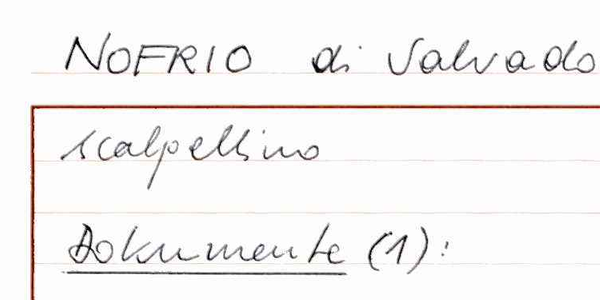 NOFRIO di Salvado
scalpellino
Dokumente (1):